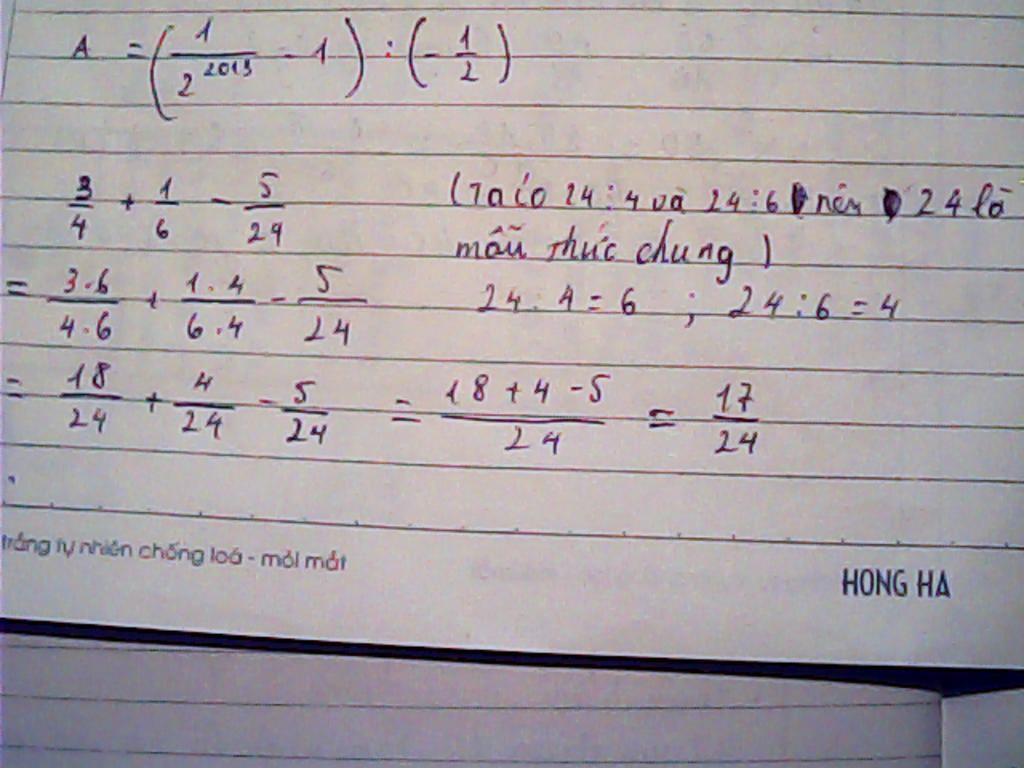 A = (1/2^2013 - 1) : (- 1/2)
3/4 + 1/6 - 5/24 (Ta có 24 : 4 và 24 : 6 nên 24 là
mẫu thức chung)
= 3.6/4.6 + 1.4/6.4 - 5/24 24 : 4 = 6 ; 24 : 6 = 4
= 18/24 + 4/24 - 5/24 = 18 + 4 - 5/24 = 17/24
trắng tự nhiên chống loá - mỏi mắt
HONG HA